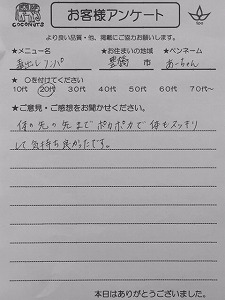 COCONUTS
お客様アンケート
spa
より良い品質・他、掲載にご協力お願いします。
★メニュー名 ★お住まいの地域 ★ペンネーム
毒出しフンパ 豊橋 市 あーちゃん
★ ○を付けてください
10代 20代 30代 40代 50代 60代 70代~
★ご意見・ご感想をお聞かせください。
体の先の先までポカポカで体もスッキリ
して気持ち良かったです。
本日はありがとうございました。